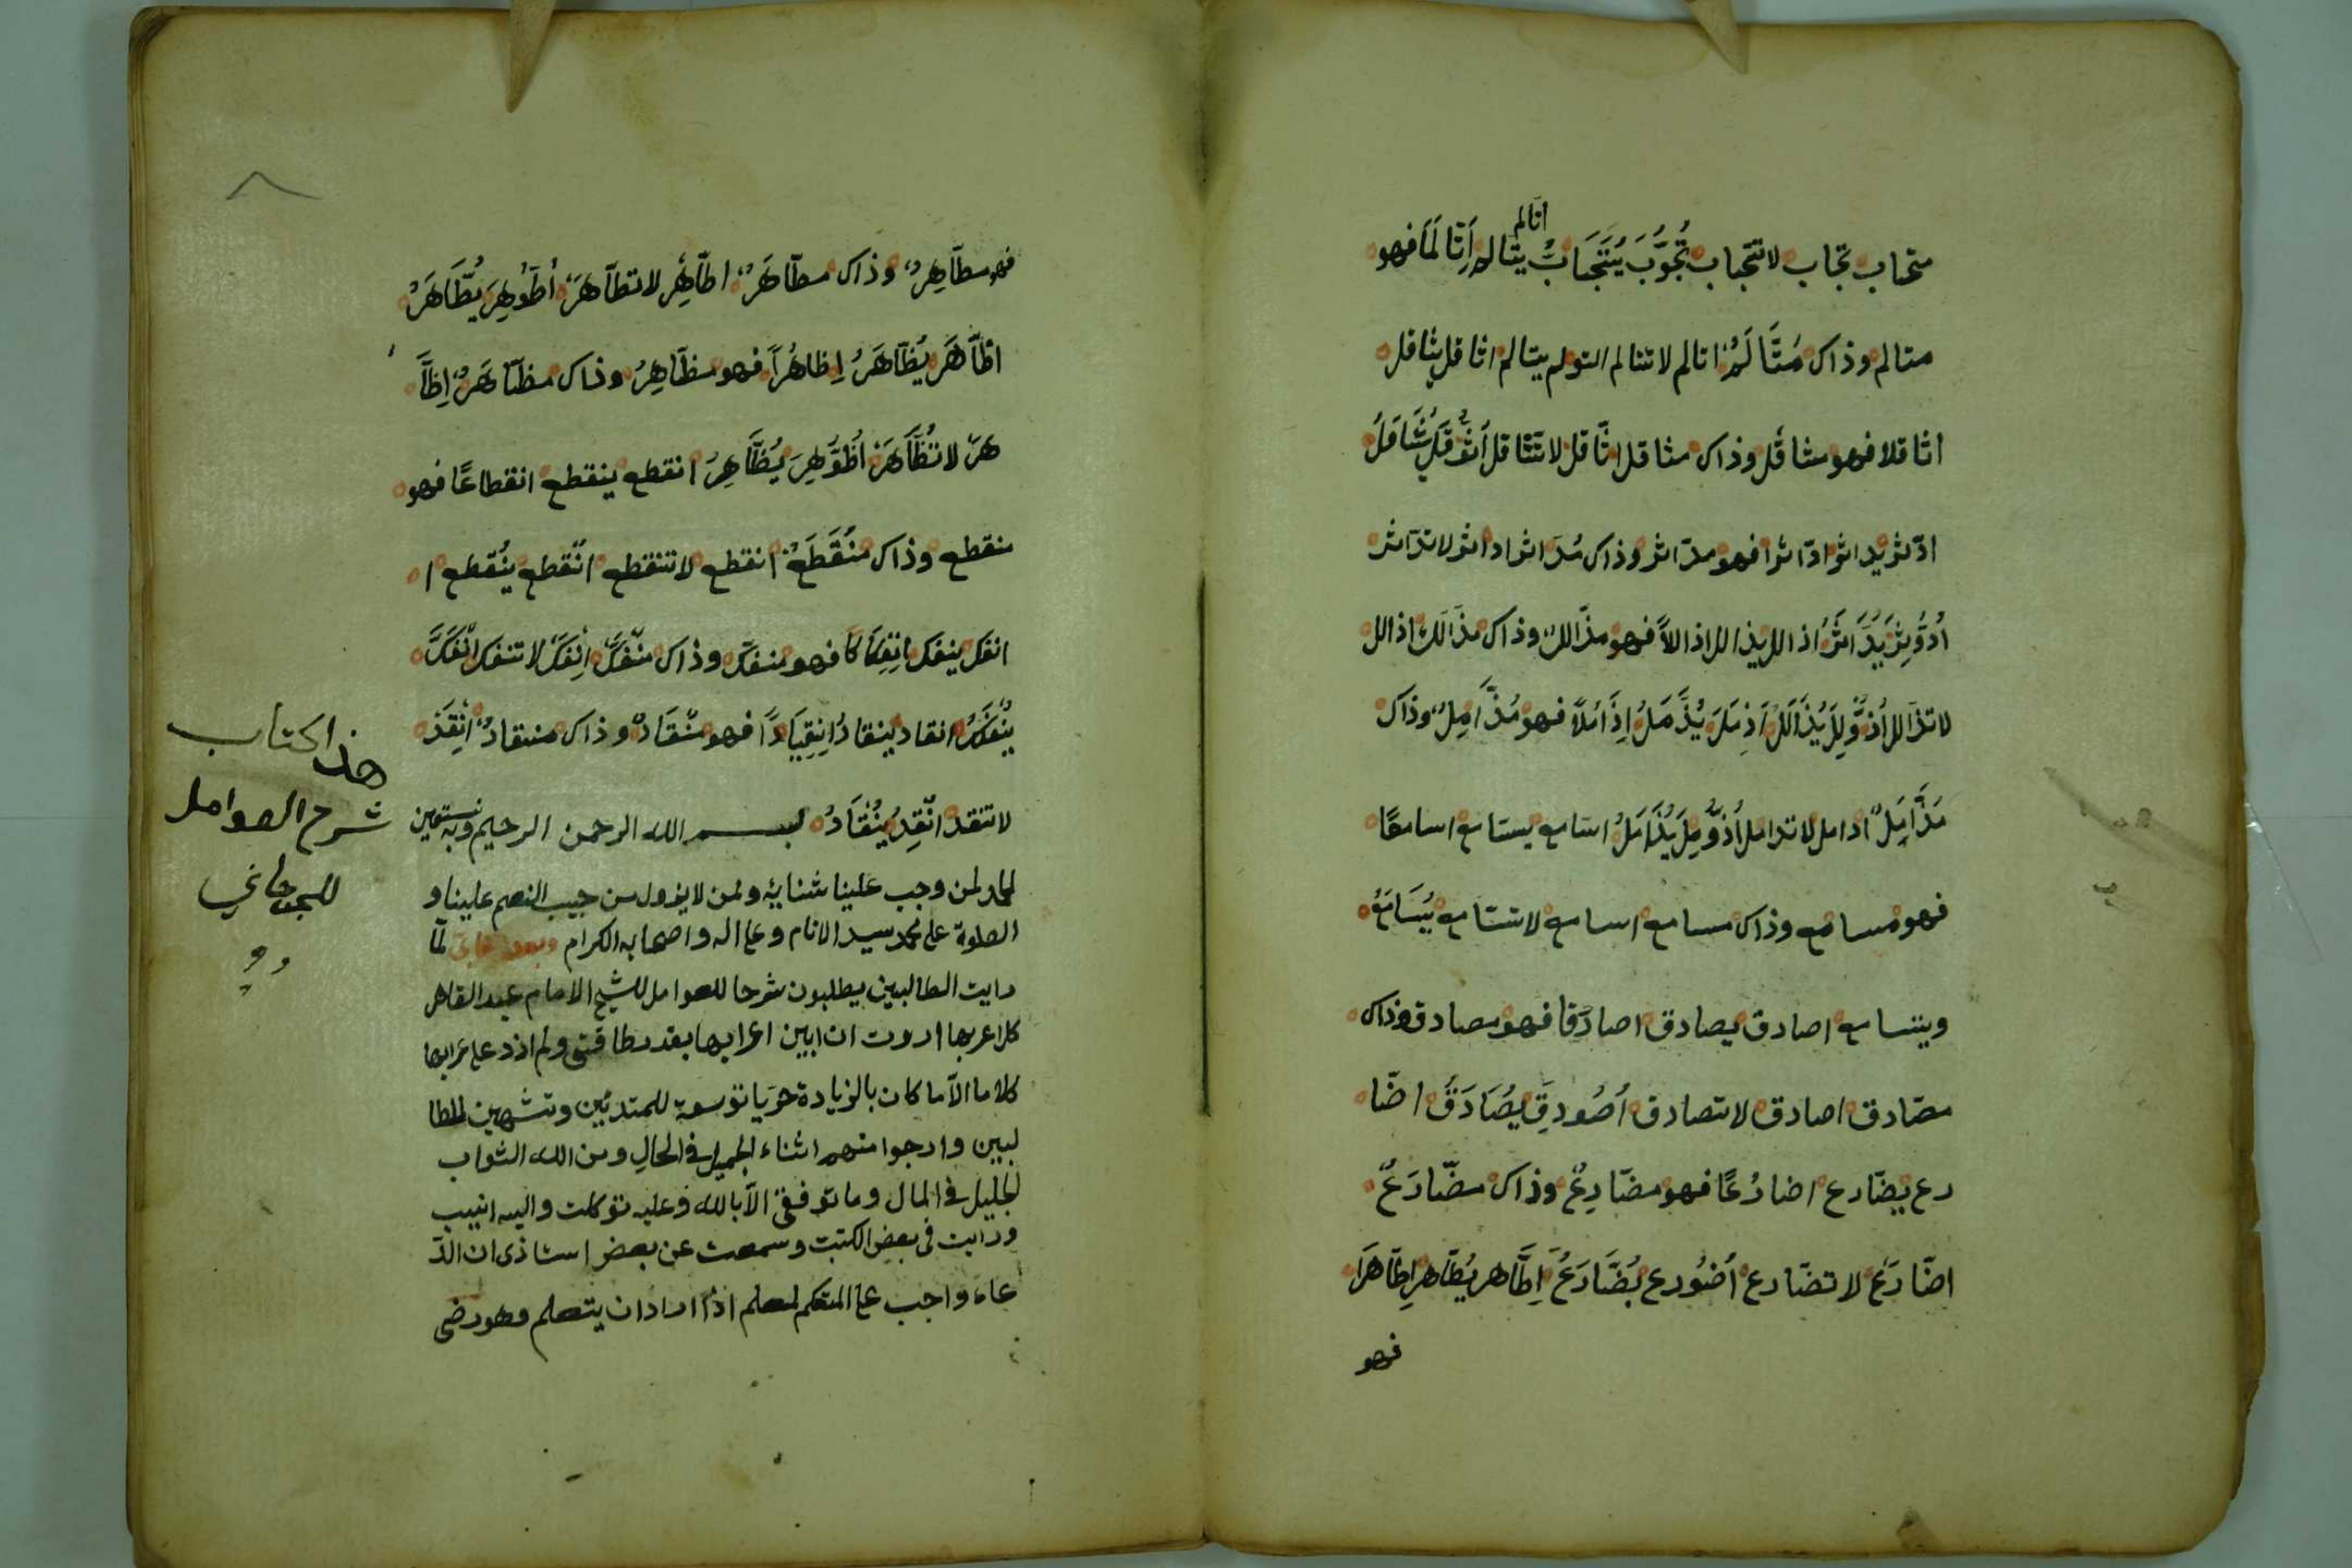 متجاب تجاب لا تتجاب تُجُوِّبَ يُتَجَابُ يتالم اِتَّالَمَا فهو
اتالم
متالم وذاك مُتَّالَمٌ اتالم لا تتالم اتولم يتالم اثاقل يثاقل
اثاقلا فهو مثاقل وذاك مثاقل اثّاقل لا تثاقل اُثُّوقِلَ يُثَّاقَلُ
ادّاثر يداثر ادّاثرا فهو مدّاثر وذاك مُدَّاثر اداثر لا تدّاثر
اُدُّوثِرَ يُدَّاثَرُ اذالل يذالل اذاللاً فهو مذّالل وذاك مذَّالَل اذالل
لا تذّالل اُذُّولِلَ يُذَّالَلُ اَذمَلَ يُذَّمَلُ اِذَّامُلاً فهو مُذَّامِلٌ وذاك
مَذَّامِلٌ اذامل لا تذامل اُذُّومِلَ يُذَّامَلُ اسّامع يسّامع اسامعًا
فهو مسامع وذاك مسامع اسامع لا تسّامع يُسَامَعُ
ويتسامع اصادق يصادق اصادَقا فهو مصادق وذاك
مصّادق اصادق لا تصادق اُصُودِقَ يُصَادَقُ اضّا
رع يضّارع اضارُعًا فهو مضّارِعٌ وذاك مضّارَعٌ
اضّارَع لا تضّارع اُضُّورع يُضَّارَعُ اِطَّاهر يُطّاهر اِطّاهَرَا
فهو
فهو مطّاهِرٌ وذاك مطّاهَرٌ اطّاهِر لا تطّاهَر اُطُّوهِرَ يُطَّاهَرُ
اظّاهَر يُظّاهَرُ اِظاهُراً فهو مظّاهِرٌ وذاك مظّاهَرٌ اِظَّا
هَر لا تُظَّاهَر اُظُّوهِرَ يُظَّاهِرُ انقطع ينقطع انقطاعًا فهو
منقطع وذاك مُنْقَطَعٌ انقطع لا تنقطع اُنْقُطع يُنْقطع ا
انفك ينفك اِنْفِكَاكًا فهو منفكّ وذاك منفكّ اِنْفَكّ لا تنفك اُنْفُكَّ
يُنْفَكُّ انقاد ينقادُ اِنْقِيَادًا فهو مُنْقَادٌ وذاك منقادٌ اِنْقَدْ
لا تنقد اُنْقِدَ يُنْقَادُ بسم الله الرحمن الرحيم وبه نستعين
الحمد لمن وجب علينا شنايه ولمن لا يزول من جيب النعم علينا و
الصلوة على محمد سيد الانام وعلى اله واصحابه الكرام وبعد فانى لمّا
رايت الطالبين يطلبون شرحا للعوامل للشيخ الامام عبد القاهر
كلا اعربها اردت ان ابين اعرابها بقدر طاقتي ولم ازد على عرابها
كلاما الّا ما كان بالزيادة حَريا توسعة للمبتدئين وتشهين للطا
لبين وارجوا منهم اثناء الجميل في الحال ومن الله الثواب
الجليل في المال وما توفيقى الّا بالله وعليه توكلت واليه انيب
ورايت فى بعض الكتب وسمعت عن بعض استاذى ان الدّ
عاء واجب على المتكم لمعلم اذا اراد ان يتعلم وهو رضى
هذا كتاب
شرح العوامل
للجرجاني